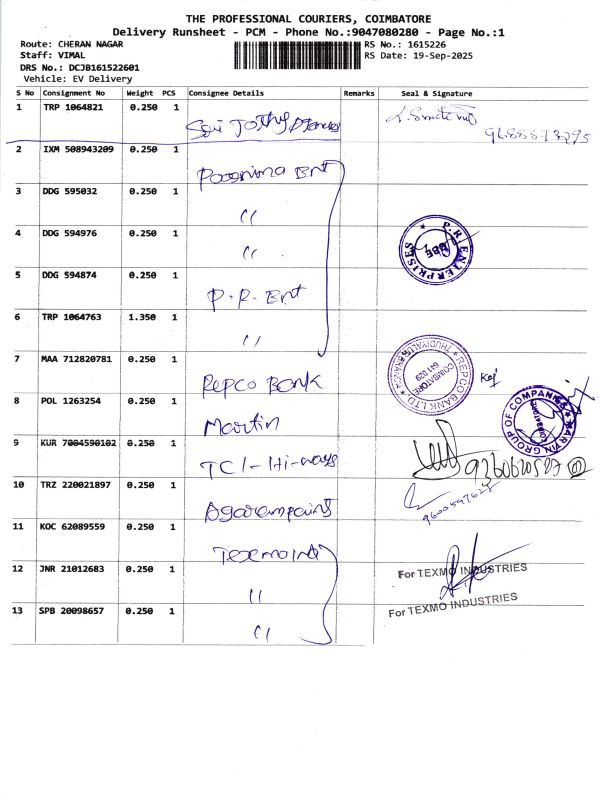 THE PROFESSIONAL COURIERS, COIMBATORE
Delivery Runsheet - PCM - Phone No.:9047080280 - Page No.:1
Route: CHERAN NAGAR
RS No.: 1615226
Staff: VIMAL
RS Date: 19-Sep-2025
DRS No.: DCJB161522601
Vehicle: EV Delivery
S No Consignment No Weight PCS Consignee Details Remarks Seal & Signature
1 TRP 1064821 0.250 1
Sri Jothy
2 IXM 508943209 0.250 1
Poornima Ent
3 DDG 595032 0.250 1
"
4 DDG 594976 0.250 1
"
P.R. ENTERPRISES
CBE
5 DDG 594874 0.250 1
P.R. Ent
6 TRP 1064763 1.350 1
"
7 MAA 712820781 0.250 1
Repco Bank
REPCO BANK LTD. THUDIYALUR BRANCH
COIMBATORE
641 029
8 POL 1263254 0.250 1
Martin
MARTIN GROUP OF COMPANIES
COIMBATORE
9 KUR 7004590102 0.250 1
TCI-Hi-ways
9360620587
10 TRZ 220021897 0.250 1
Agarampaints
11 KOC 62089559 0.250 1
Texmo Ind
12 JNR 21012683 0.250 1
"
For TEXMO INDUSTRIES
13 SPB 20098657 0.250 1
"
For TEXMO INDUSTRIES